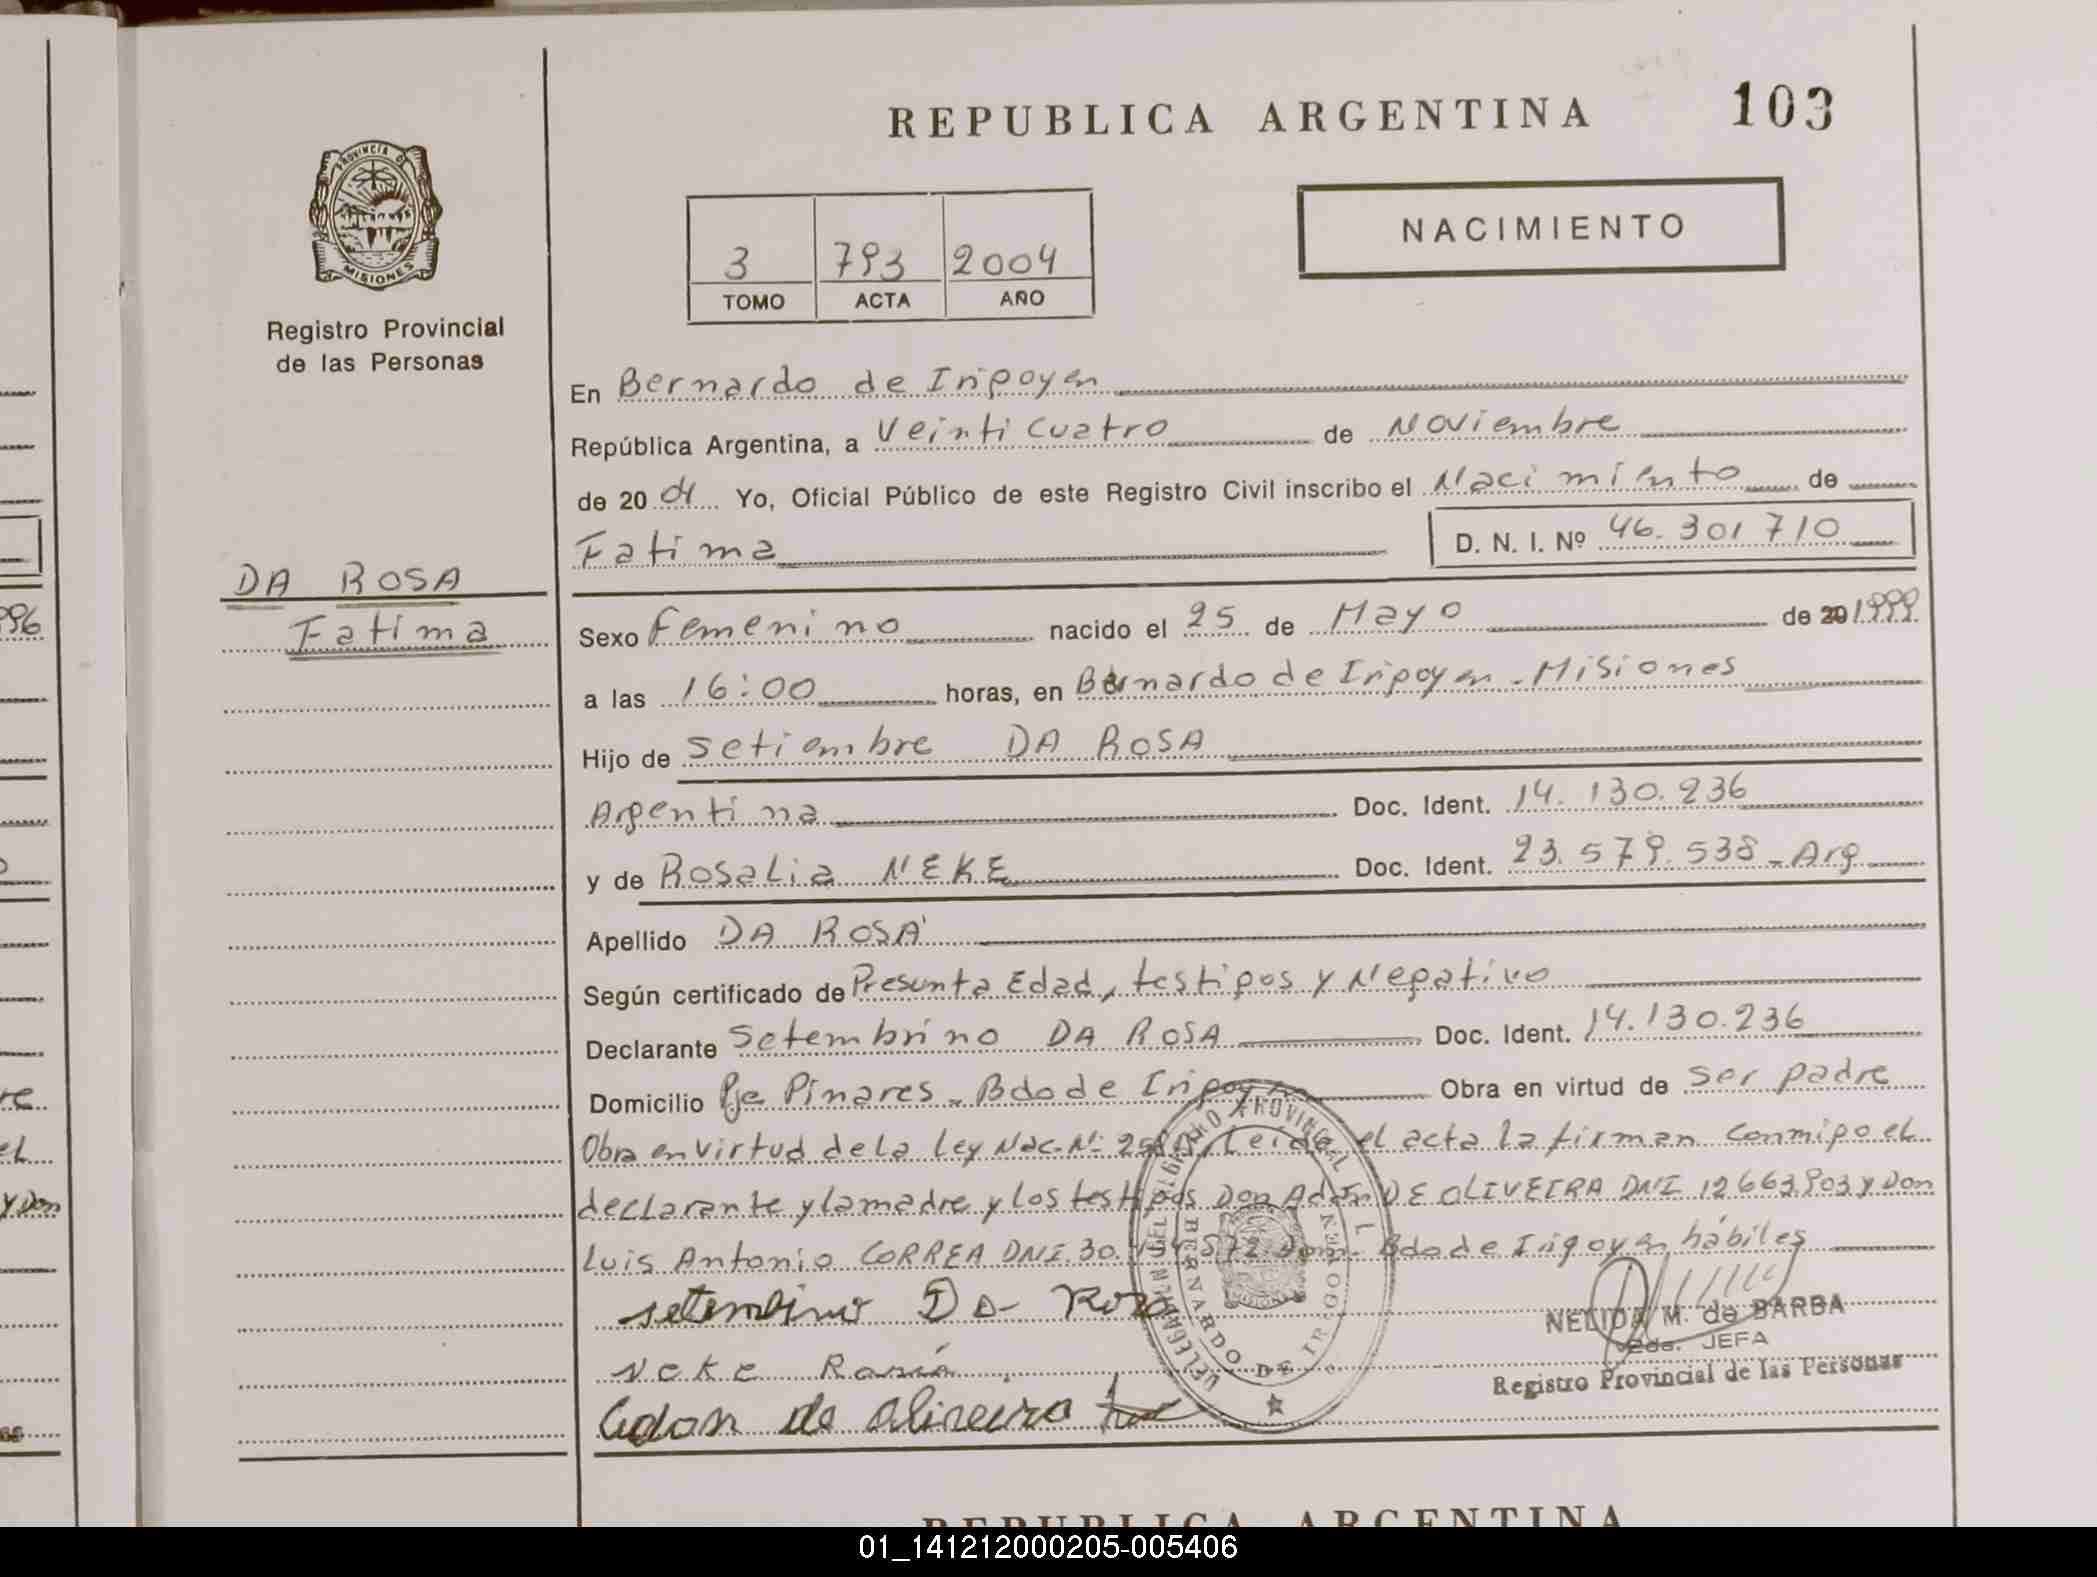 REPUBLICA ARGENTINA 103
PROVINCIA DE
MISIONES
Registro Provincial
de las Personas
3 793 2004
TOMO ACTA AÑO
NACIMIENTO
En Bernardo de Irigoyen
República Argentina, a Veinticuatro de Noviembre
de 20 04 Yo, Oficial Público de este Registro Civil inscribo el Nacimiento de
Fatima D. N. I. Nº 46.301710
DA ROSA
Fatima
Sexo Femenino nacido el 25 de Mayo de 20 1999
a las 16:00 horas, en Bernardo de Irigoyen - Misiones
Hijo de Setiembre DA ROSA
Argentina Doc. Ident. 14.130.236
y de Rosalia NEKE Doc. Ident. 23.579.538 - Arg
Apellido DA ROSA
Según certificado de Presunta Edad, testigos y Negativo
Declarante Setembrino DA ROSA Doc. Ident. 14.130.236
Domicilio Pje Pinares - Bdo de Irigoyen Obra en virtud de ser padre
Obra en virtud de la Ley Nac. Nº Leida el acta la firman conmigo el
declarante y la madre y los testigos Don Adán DE OLIVEIRA DNI 12663903 y Don
Luis Antonio CORREA DNI. 30. 572 Dom. Bdo de Irigoyen hábiles
setembrino Da Roza
NELIDA M. de BARBA
JEFA
Registro Provincial de las Personas
Neke
Adon de oliveira
BERNARDO DE IRIGOYEN
REPUBLICA ARGENTINA
01_141212000205-005406